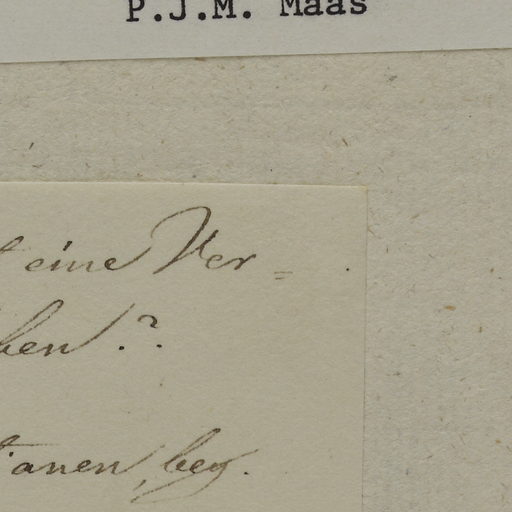 P.J.M. Maas
eine Ver=
ben ??
ianen, bey.